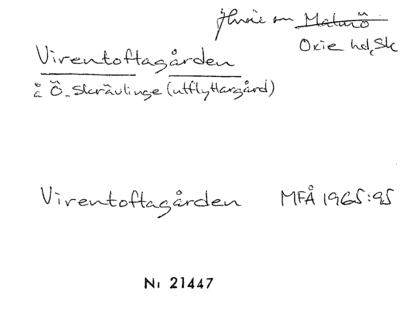 Husie sn Malmö
Oxie hd, Sk
Virentoftagården
å Ö. Skrävlinge (utflyttargård)
Virentoftagården MFÅ 1965:95
Nr 21447